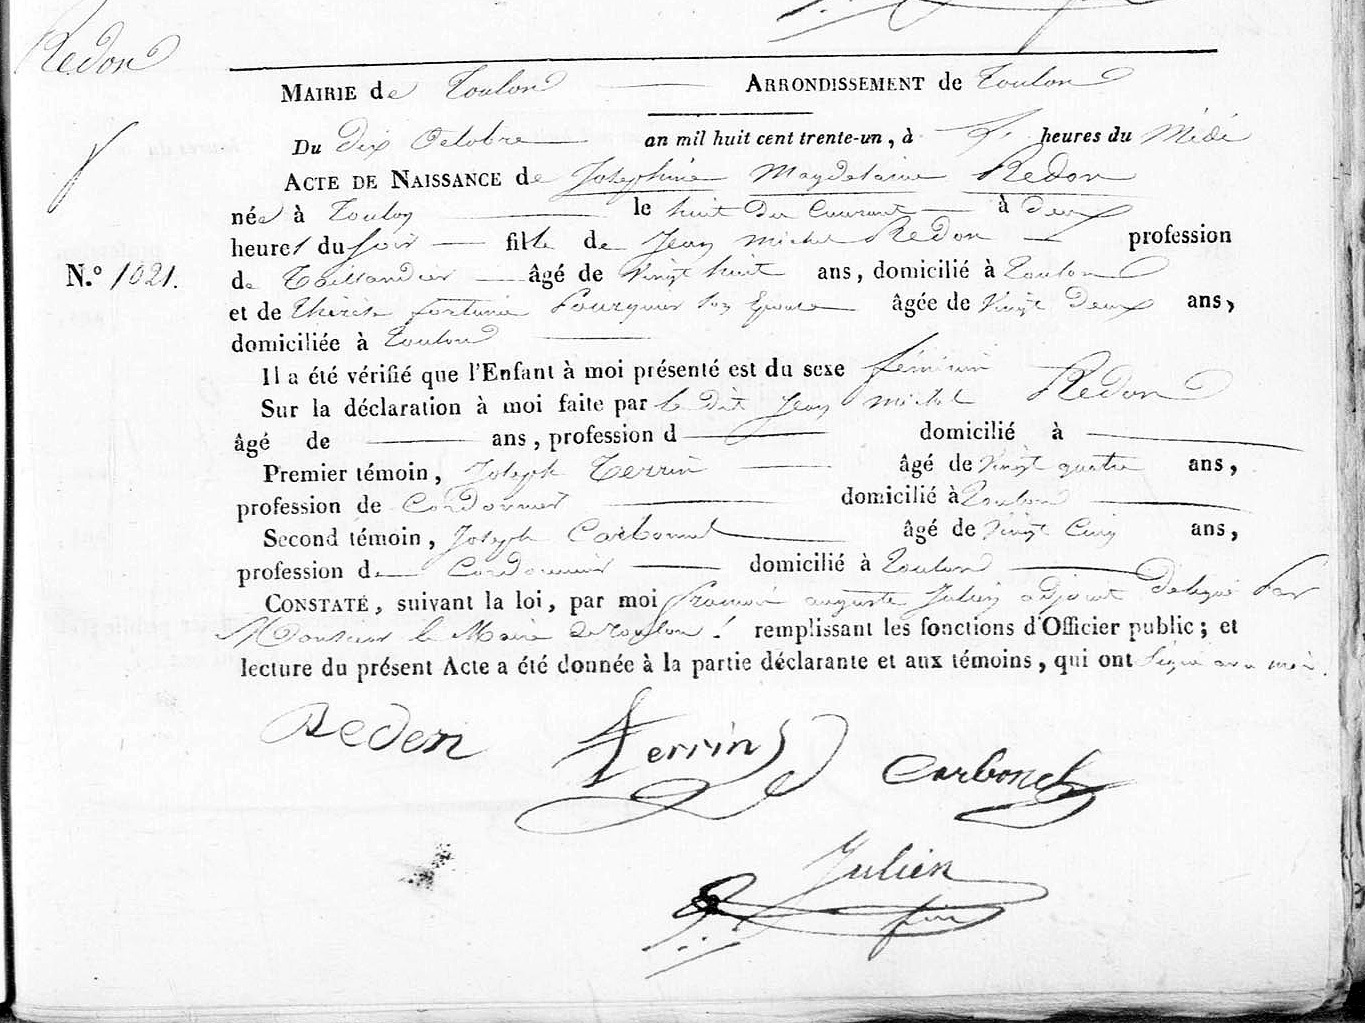 Redon
MAIRIE de Toulon ARRONDISSEMENT de Toulon
Du Dix Octobre an mil huit cent trente-un, à heures du Midi
ACTE DE NAISSANCE de Joséphine Magdelaine Redon
née à Toulon le huit du Courant à deux
heures du soir fille de Jean Michel Redon profession
N.º 1021.
de Taillandier âgé de vingt huit ans, domicilié à Toulon
et de Thérèse fortunée Fourquier son Epouse âgée de Vingt Deux ans,
domiciliée à Toulon
Il a été vérifié que l'Enfant à moi présenté est du sexe féminin
Sur la déclaration à moi faite par le dit Jean Michel Redon
âgé de ans, profession d domicilié à
Premier témoin, Joseph Terrin âgé de Vingt quatre ans,
profession de Cordonnier domicilié à Toulon
Second témoin, Joseph Carbonel âgé de Vingt Cinq ans,
profession de Cordonnier domicilié à Toulon
CONSTATÉ, suivant la loi, par moi françois auguste Julien adjoint Delegué Par
Monsieur le Maire de Toulon remplissant les fonctions d'Officier public; et
lecture du présent Acte a été donnée à la partie déclarante et aux témoins, qui ont signé avec moi.
Redon Terrin Carbonel
Julien